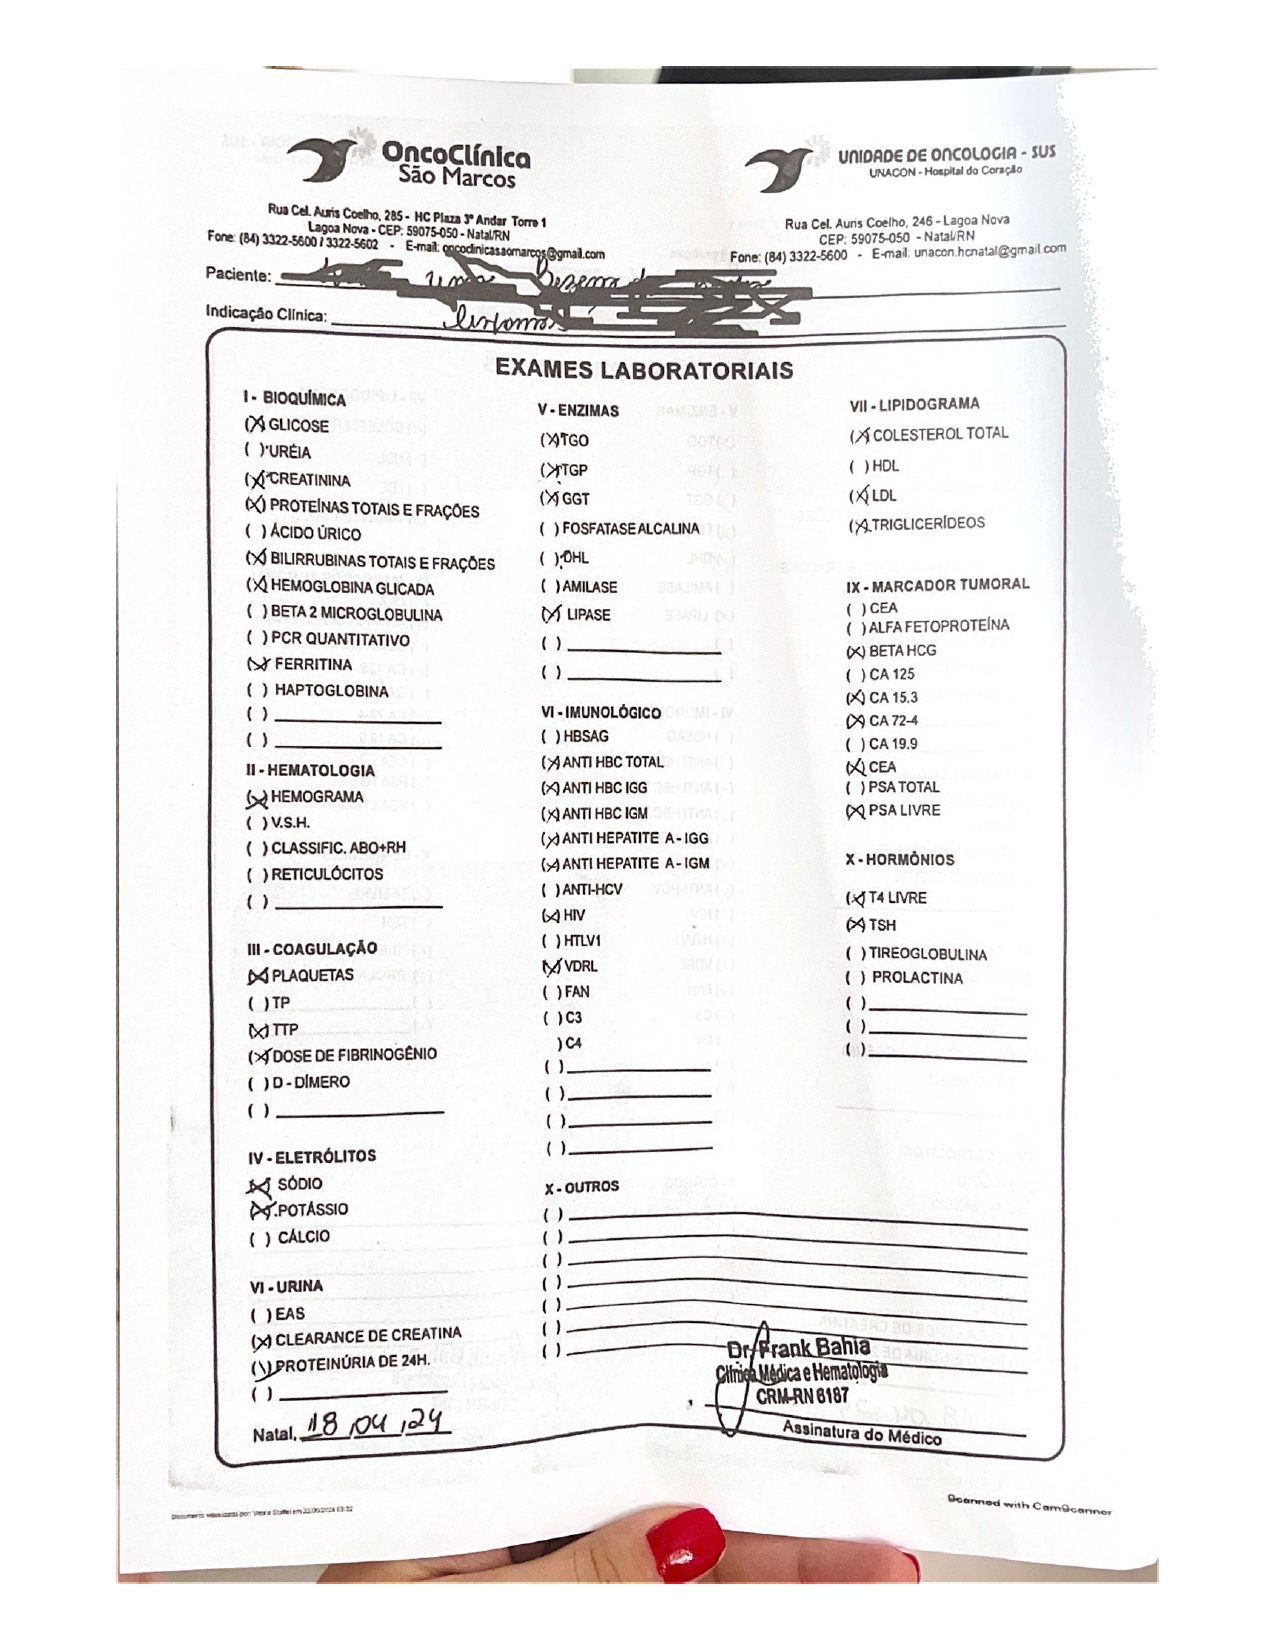 OncoClínica
São Marcos
Rua Cel. Auris Coelho, 285 - HC Plaza 3º Andar Torre 1
Lagoa Nova - CEP: 59075-050 - Natal/RN
Fone: (84) 3322-5600 / 3322-5602 - E-mail: oncoclinicasaomarcos@gmail.com
UNIDADE DE ONCOLOGIA - SUS
UNACON - Hospital do Coração
Rua Cel. Auris Coelho, 246 - Lagoa Nova
CEP: 59075-050 - Natal/RN
Fone: (84) 3322-5600 - E-mail: unacon.hcnatal@gmail.com
Paciente:
Indicação Clínica:
EXAMES LABORATORIAIS
I - BIOQUÍMICA
(X) GLICOSE
( ) URÉIA
(X) CREATININA
(X) PROTEÍNAS TOTAIS E FRAÇÕES
( ) ÁCIDO ÚRICO
(X) BILIRRUBINAS TOTAIS E FRAÇÕES
(X) HEMOGLOBINA GLICADA
( ) BETA 2 MICROGLOBULINA
( ) PCR QUANTITATIVO
(X) FERRITINA
( ) HAPTOGLOBINA
( )
( )
II - HEMATOLOGIA
(X) HEMOGRAMA
( ) V.S.H.
( ) CLASSIFIC. ABO+RH
( ) RETICULÓCITOS
( )
III - COAGULAÇÃO
(X) PLAQUETAS
( ) TP
(X) TTP
(X) DOSE DE FIBRINOGÊNIO
( ) D - DÍMERO
( )
IV - ELETRÓLITOS
(X) SÓDIO
(X) POTÁSSIO
( ) CÁLCIO
VI - URINA
( ) EAS
(X) CLEARANCE DE CREATINA
(\) PROTEINÚRIA DE 24H.
( )
Natal, 18,04,24
V - ENZIMAS
(X) TGO
(X) TGP
(X) GGT
( ) FOSFATASE ALCALINA
( ) DHL
( ) AMILASE
(X) LIPASE
( )
( )
VI - IMUNOLÓGICO
( ) HBSAG
(X) ANTI HBC TOTAL
(X) ANTI HBC IGG
(X) ANTI HBC IGM
(X) ANTI HEPATITE A - IGG
(X) ANTI HEPATITE A - IGM
( ) ANTI-HCV
(X) HIV
( ) HTLV1
(X) VDRL
( ) FAN
( ) C3
) C4
( )
( )
( )
( )
X - OUTROS
( )
( )
( )
( )
( )
( )
( )
VII - LIPIDOGRAMA
(X COLESTEROL TOTAL
( ) HDL
(X) LDL
(X) TRIGLICERÍDEOS
IX - MARCADOR TUMORAL
( ) CEA
( ) ALFA FETOPROTEÍNA
(X) BETA HCG
( ) CA 125
(X) CA 15.3
(X) CA 72-4
( ) CA 19.9
(X) CEA
( ) PSA TOTAL
(X) PSA LIVRE
X - HORMÔNIOS
(X) T4 LIVRE
(X) TSH
( ) TIREOGLOBULINA
( ) PROLACTINA
( )
( )
( )
Dr. Frank Bahia
Clínica Médica e Hematologia
CRM-RN 6187
Assinatura do Médico
Scanned with CamScanner